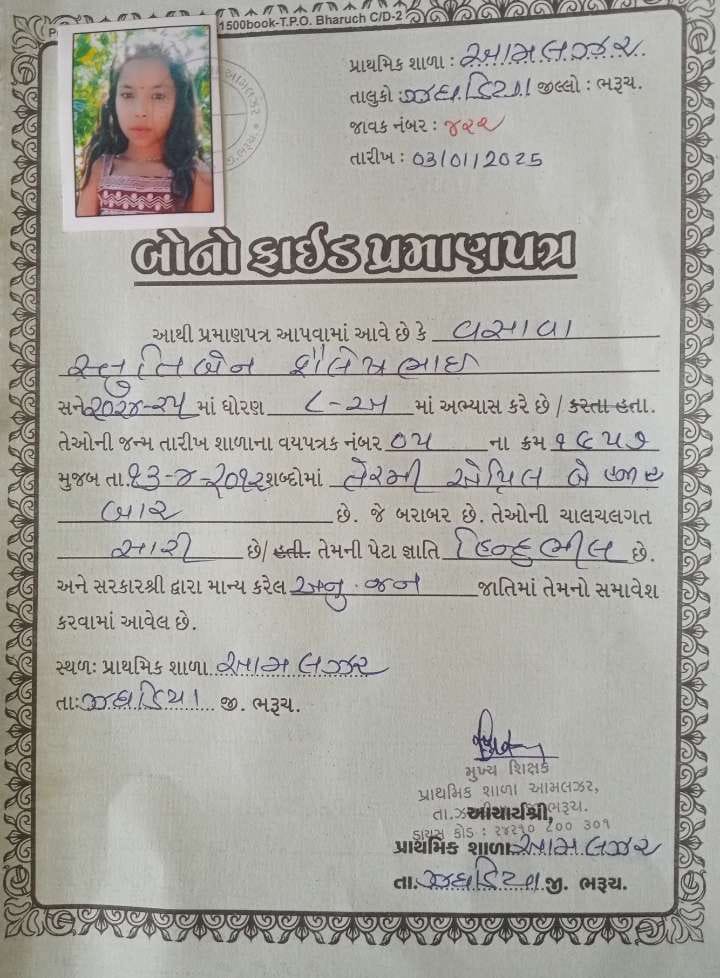 1500book-T.P.O. Bharuch C/D-2
પ્રાથમિક શાળા : આમલઝર
તાલુકો : ઝઘડિયા જીલ્લો : ભરૂચ.
જાવક નંબર : ૪૨૨
તારીખ : 03/01/2025
બોનો ફાઈડ પ્રમાણપત્ર
આથી પ્રમાણપત્ર આપવામાં આવે છે કે વસાવા
સ્તુતિબેન શૈલેષભાઇ
સને ૨૦૨૪-૨૫ માં ધોરણ ૮-અ માં અભ્યાસ કરે છે / કરતા હતા.
તેઓની જન્મ તારીખ શાળાના વયપત્રક નંબર ૦૫ ના ક્રમ ૧૯૫૭
મુજબ તા. ૧૩-૪-૨૦૧૨ શબ્દોમાં તેરમી એપ્રિલ બે હજાર
બાર છે. જે બરાબર છે. તેઓની ચાલચલગત
સારી છે/ હતી. તેમની પેટા જ્ઞાતિ હિન્દુભીલ છે.
અને સરકારશ્રી દ્વારા માન્ય કરેલ અનુ. જન જાતિમાં તેમનો સમાવેશ
કરવામાં આવેલ છે.
સ્થળઃ પ્રાથમિક શાળા આમલઝર
તાઃ ઝઘડિયા જી. ભરૂચ.
મુખ્ય શિક્ષક
પ્રાથમિક શાળા આમલઝર,
તા. ભરૂચ.
આચાર્યશ્રી,
ડાયસ કોડ : ૨૪૨૧૦ ૮૦૦ ૩૦૧
પ્રાથમિક શાળા આમલઝર
તા. ઝઘડિયા જી. ભરૂચ.